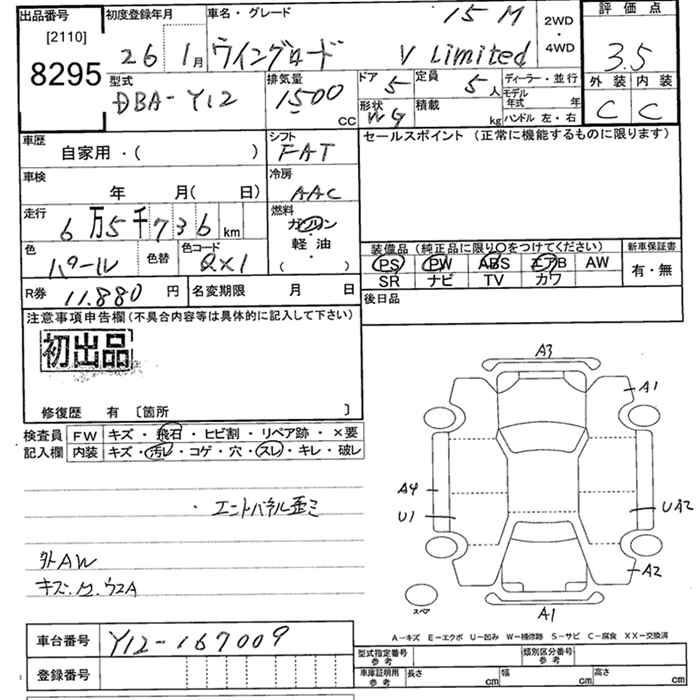 出品番号 [2110] 8295
初度登録年月 26 1月
車名・グレード 15M
ウイングロード V Limited
2WD・4WD
評価点 3.5
外装 内装
C C
型式 DBA-Y12
排気量 1500 CC
ドア 5
定員 5人
形状 WG
積載 kg
ディーラー・並行
モデル年式 年
ハンドル 左・右
車歴 自家用・( )
シフト FAT
セールスポイント (正常に機能するものに限ります)
車検 年 月( 日)
冷房 AAC
走行 6万5千736km
燃料 ガソリン・軽油・( )
色 パール
色替
色コード QX1
装備品 (純正品に限り〇をつけてください)
PS PW ABS エアB AW
SR ナビ TV カワ
新車保証書 有・無
R券 11.880 円
名変期限 月 日
後日品
注意事項申告欄 (不具合内容等は具体的に記入して下さい)
初出品
修復歴 有 〔箇所 〕
検査員記入欄
FW キズ・飛石・ヒビ割・リペア跡・×要
内装 キズ・汚レ・コゲ・穴・スレ・キレ・破レ
・エンドパネル歪ミ
外AW
キズ.
A3
A1
A4
U1
UA2
A2
スペア
A1
A-キズ E-エクボ U-凹み W-補修跡 S-サビ C-腐食 XX-交換済
車台番号 Y12-167009
登録番号
型式指定番号 参考
類別区分番号 参考
車庫証明用 参考
長さ cm 幅 cm 高さ cm